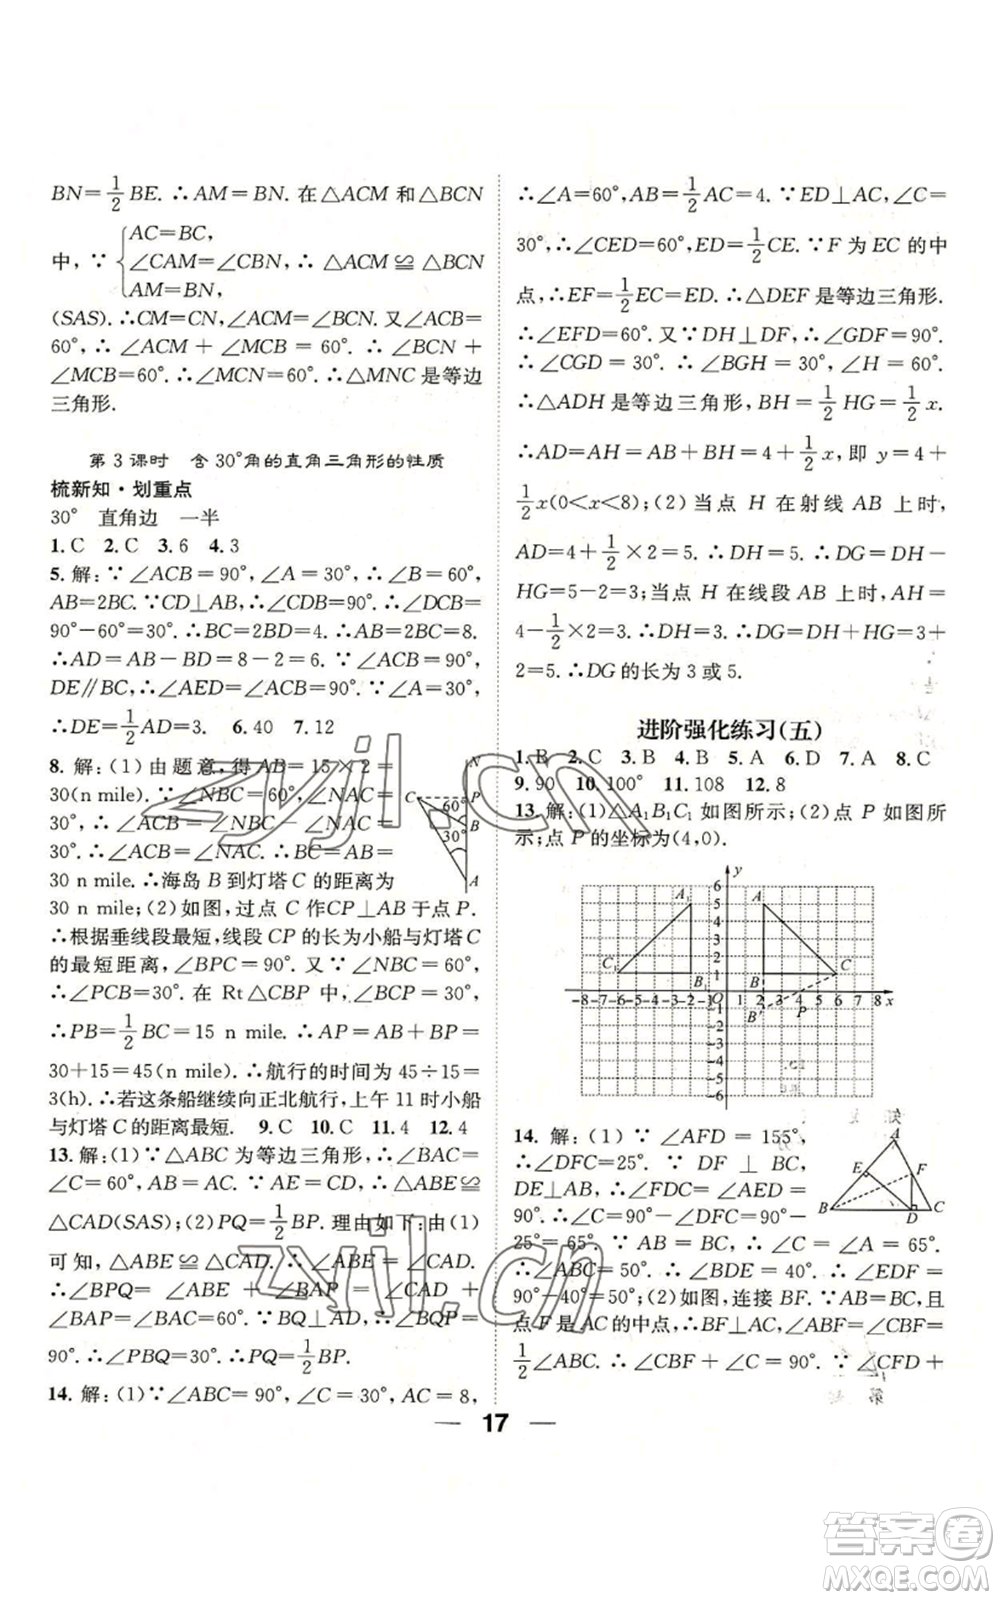 BN=1/2BE. ∴AM=BN. 在△ACM 和△BCN
中, ∵ { AC=BC,
∠CAM=∠CBN, ∴△ACM≌△BCN
AM=BN,
(SAS). ∴CM=CN,∠ACM=∠BCN. 又∠ACB=
60°, ∴∠ACM+∠MCB=60°. ∴∠BCN+
∠MCB=60°. ∴∠MCN=60°. ∴△MNC 是等边
三角形.
第 3 课时 含 30°角的直角三角形的性质
梳新知·划重点
30° 直角边 一半
1. C 2. C 3. 6 4. 3
5. 解: ∵∠ACB=90°,∠A=30°, ∴∠B=60°,
AB=2BC. ∵CD⊥AB, ∴∠CDB=90°. ∴∠DCB=
90°-60°=30°. ∴BC=2BD=4. ∴AB=2BC=8.
∴AD=AB-BD=8-2=6. ∵∠ACB=90°,
DE∥BC, ∴∠AED=∠ACB=90°. ∵∠A=30°,
∴DE=1/2AD=3. 6. 40 7. 12
8. 解: (1)由题意,得 AB=15×2=
30(n mile). ∵∠NBC=60°,∠NAC=
30°, ∴∠ACB=∠NBC-∠NAC=
30°. ∴∠ACB=∠NAC. ∴BC=AB=
30 n mile. ∴海岛 B 到灯塔 C 的距离为
30 n mile; (2)如图,过点 C 作CP⊥AB 于点 P.
∴根据垂线段最短,线段 CP 的长为小船与灯塔 C
的最短距离,∠BPC=90°. 又∵∠NBC=60°,
∴∠PCB=30°. 在 Rt△CBP 中, ∵∠BCP=30°,
∴PB=1/2BC=15 n mile. ∴AP=AB+BP=
30+15=45(n mile). ∴航行的时间为 45÷15=
3(h). ∴若这条船继续向正北航行,上午 11 时小船
与灯塔 C 的距离最短. 9. C 10. C 11. 4 12. 4
13. 解: (1)∵△ABC 为等边三角形, ∴∠BAC=
∠C=60°, AB=AC. 又∵AE=CD, ∴△ABE≌
△CAD(SAS); (2)PQ=1/2BP. 理由如下:由(1)
可知, △ABE≌△CAD. ∴∠ABE=∠CAD.
∴∠BPQ=∠ABE+∠BAP=∠CAD+
∠BAP=∠BAC=60°. ∵BQ⊥AD, ∴∠BQP=
90°. ∴∠PBQ=30°. ∴PQ=1/2BP.
14. 解: (1)∵∠ABC=90°,∠C=30°,AC=8,
N
C
P
60°
B
30°
A
∴∠A=60°,AB=1/2AC=4. ∵ED⊥AC,∠C=
30°, ∴∠CED=60°,ED=1/2CE. ∵F 为 EC 的中
点, ∴EF=1/2EC=ED. ∴△DEF 是等边三角形.
∴∠EFD=60°. 又∵DH⊥DF, ∴∠GDF=90°.
∴∠CGD=30°. ∴∠BGH=30°,∠H=60°.
∴△ADH 是等边三角形,BH=1/2HG=1/2x.
∴AD=AH=AB+BH=4+1/2x,即 y=4+
1/2x(0<x<8); (2)当点 H 在射线 AB 上时,
AD=4+1/2×2=5. ∴DH=5. ∴DG=DH-
HG=5-2=3;当点 H 在线段 AB 上时,AH=
4-1/2×2=3. ∴DH=3. ∴DG=DH+HG=3+
2=5. ∴DG 的长为 3 或 5.
进阶强化练习(五)
1. B 2. C 3. B 4. B 5. A 6. D 7. A 8. C
9. 90 10. 100° 11. 108 12. 8
13. 解: (1)△A₁B₁C₁ 如图所示; (2)点 P 如图所
示;点 P 的坐标为(4,0).
y
6
5
4
3
2
1
A₁
A
C₁
B₁
B
C
-8-7-6-5-4-3-2-1 O 1 2 3 4 5 6 7 8 x
B'
P
-1
-2
-3
-4
-5
-6
14. 解: (1)∵∠AFD=155°,
∴∠DFC=25°. ∵DF⊥BC,
DE⊥AB, ∴∠FDC=∠AED=
90°. ∴∠C=90°-∠DFC=90°-
25°=65°. ∵AB=BC, ∴∠C=∠A=65°.
∴∠ABC=50°. ∴∠BDE=40°. ∴∠EDF=
90°-40°=50°; (2)如图,连接 BF. ∵AB=BC,且
点 F 是 AC 的中点, ∴BF⊥AC,∠ABF=∠CBF=
1/2∠ABC. ∴∠CBF+∠C=90°. ∵∠CFD+
A
E
F
B
D
C
17
zyjl.cn
zyjl.cn
答案圈
MXQE.COM